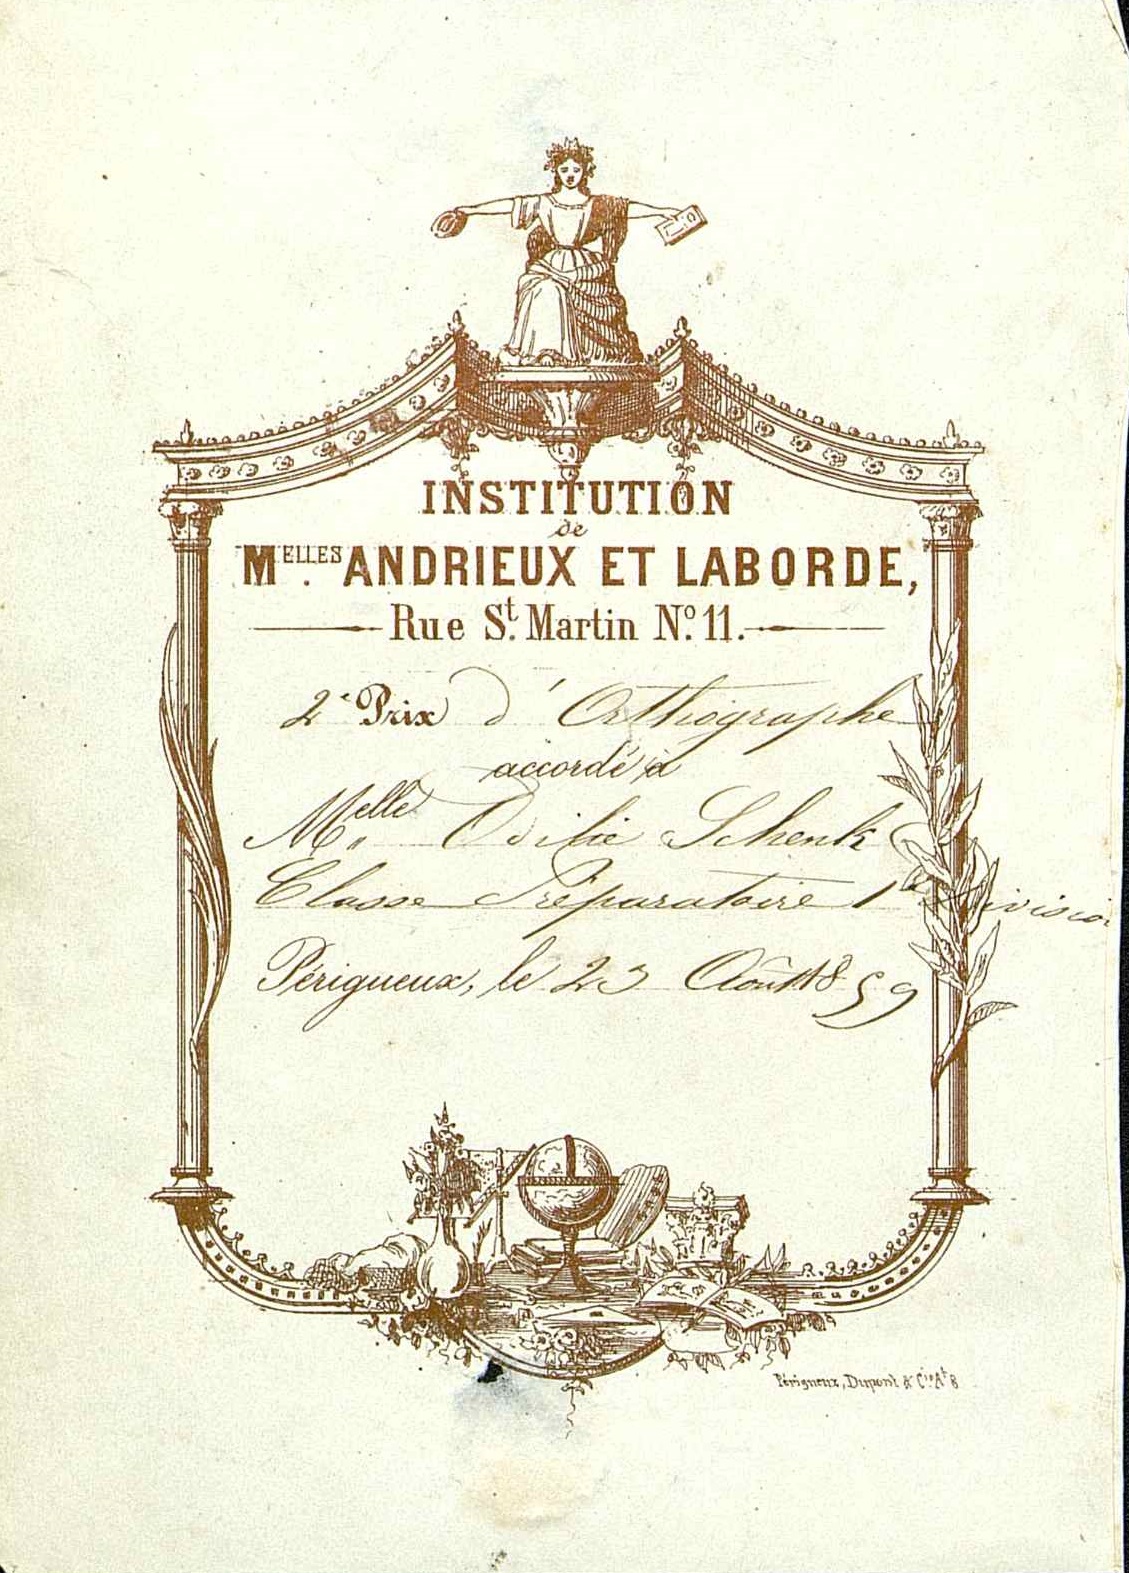 INSTITUTION
de
Melles ANDRIEUX ET LABORDE,
Rue St. Martin No. 11.
2e Prix d'Orthographe
accordé à
Melle Odilie Schenk
Classe Préparatoire 1re Division
Périgueux, le 23 Août 1859
Périgueux, Dupont & Cie